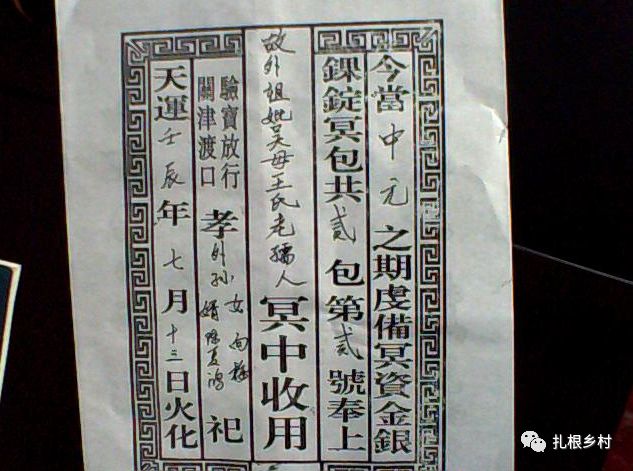 今當中元之期虔備冥資金銀
錁錠冥包共貳包第貳號奉上
故外祖妣吴母王氏老孺人冥中收用
驗寶放行
關津渡口
孝外孫女
婿
祀
天運壬辰年七月十三日火化
扎根乡村